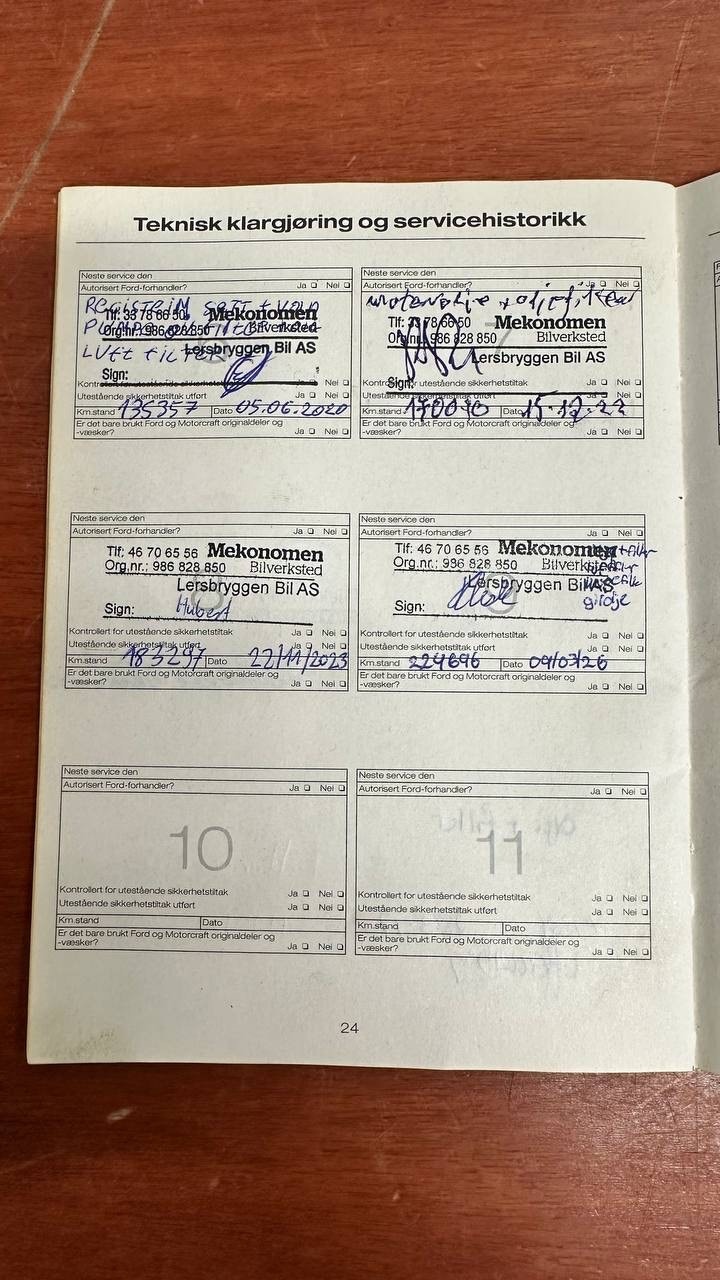 Teknisk klargjøring og servicehistorikk
Neste service den
Autorisert Ford-forhandler? Ja Nei
REGISTERIM SETT + VANN
PUMPE
Tlf: 33 78 66 50 Mekonomen
Org.nr.: 986 828 850 Bilverksted
LUFT FILTER
Lersbryggen Bil AS
Sign:
Kontrollert for utestående sikkerhetstiltak Ja Nei
Utestående sikkerhetstiltak utført Ja Nei
Km.stand 135357 Dato 05.06.2020
Er det bare brukt Ford og Motorcraft originaldeler og
-væsker? Ja Nei
Neste service den
Autorisert Ford-forhandler? Ja Nei
motorolje + oljefilter
Tlf: 33 78 66 50 Mekonomen
Org.nr.: 986 828 850 Bilverksted
Lersbryggen Bil AS
Sign:
utestående sikkerhetstiltak Ja Nei
Utestående sikkerhetstiltak utført Ja Nei
Km.stand Dato 15.12.22
Er det bare brukt Ford og Motorcraft originaldeler og
-væsker? Ja Nei
Neste service den
Autorisert Ford-forhandler? Ja Nei
Tlf: 46 70 65 56 Mekonomen
Org.nr.: 986 828 850 Bilverksted
Lersbryggen Bil AS
Sign: Hubert
Kontrollert for utestående sikkerhetstiltak Ja Nei
Utestående sikkerhetstiltak utført Ja Nei
Km.stand 183297 Dato 22/11/2023
Er det bare brukt Ford og Motorcraft originaldeler og
-væsker? Ja Nei
Neste service den
Autorisert Ford-forhandler? Ja Nei
Tlf: 46 70 65 56 Mekonomen
Org.nr.: 986 828 850 Bilverksted
Lersbryggen Bil AS
Sign:
Kontrollert for utestående sikkerhetstiltak Ja Nei
Utestående sikkerhetstiltak utført Ja Nei
Km.stand 224696 Dato 09/03/26
Er det bare brukt Ford og Motorcraft originaldeler og
-væsker? Ja Nei
Neste service den
Autorisert Ford-forhandler? Ja Nei
10
Kontrollert for utestående sikkerhetstiltak Ja Nei
Utestående sikkerhetstiltak utført Ja Nei
Km.stand Dato
Er det bare brukt Ford og Motorcraft originaldeler og
-væsker? Ja Nei
Neste service den
Autorisert Ford-forhandler? Ja Nei
11
Kontrollert for utestående sikkerhetstiltak Ja Nei
Utestående sikkerhetstiltak utført Ja Nei
Km.stand Dato
Er det bare brukt Ford og Motorcraft originaldeler og
-væsker? Ja Nei
24